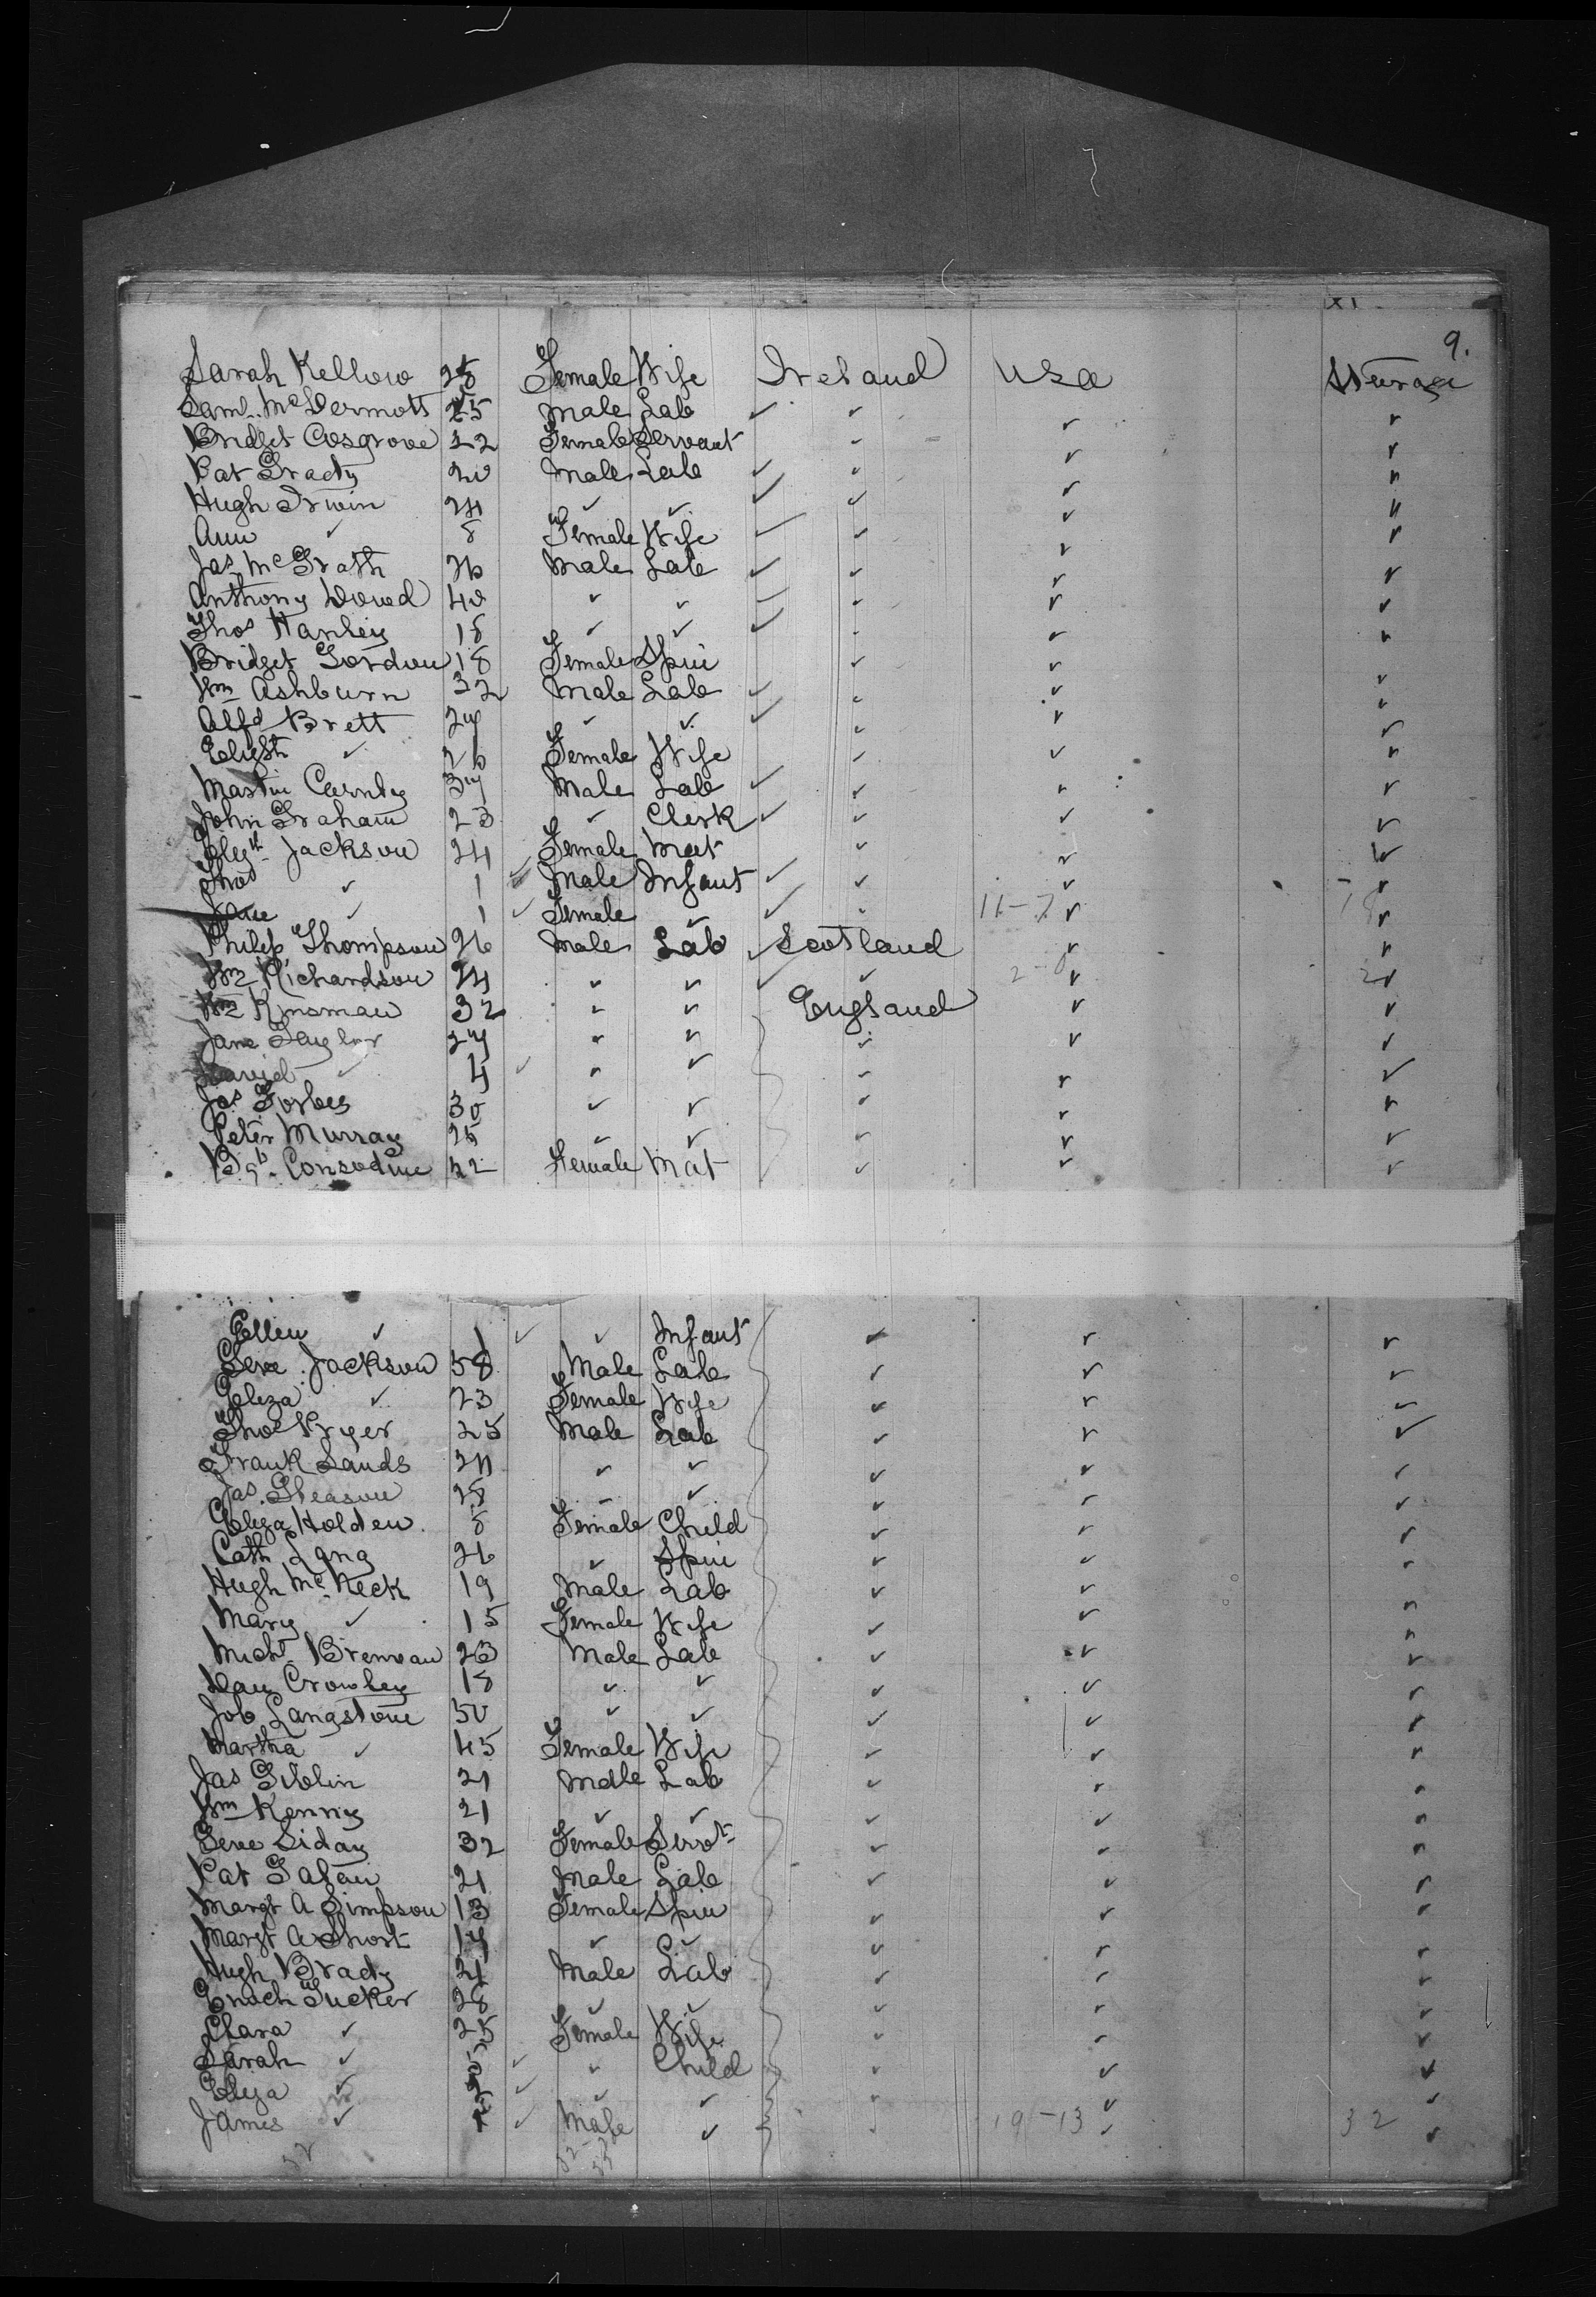 9.
Sarah Kellow 28 Female Wife Ireland USA Steerage
Saml. McDermott 25 Male Lab ✓ ✓ ✓ ✓
Bridget Cosgrove 22 Female Servant ✓ ✓ ✓
Pat Grady 20 Male Lab ✓ ✓ ✓ ✓
Hugh Irwin 24 ✓ ✓ ✓ ✓ ✓ ✓
Ann ✓ 8 Female Wife ✓ ✓ ✓ ✓
Jas McGrath 26 Male Lab ✓ ✓ ✓ ✓
Anthony Dowd 40 ✓ ✓ ✓ ✓ ✓ ✓
Thos Hanley 18 ✓ ✓ ✓ ✓ ✓ ✓
Bridget Gordon 18 Female Spin ✓ ✓ ✓
Wm Ashburn 32 Male Lab ✓ ✓ ✓ ✓
Alfd Brett 24 ✓ ✓ ✓ ✓ ✓ ✓
Elizth ✓ 26 Female Wife ✓ ✓ ✓
Martin 34 Male Lab ✓ ✓ ✓ ✓
John Graham 23 ✓ Clerk ✓ ✓ ✓ ✓
Elizth Jackson 24 Female Mat ✓ ✓ ✓
Thos ✓ 1 ✓ Male Infant ✓ ✓ ✓ ✓
Jane ✓ 1 ✓ Female ✓ ✓ ✓ 11-7 ✓ 18 ✓
Philip Thompson 26 Male Lab ✓ Scotland ✓ ✓
Wm Richardson 24 ✓ ✓ ✓ ✓ 2-0 ✓ 2 ✓
Wm Kinsman 32 ✓ ✓ England ✓ ✓
Jane Taylor 24 ✓ ✓ ✓ ✓ ✓
David ✓ 4 ✓ ✓ ✓ ✓ ✓ ✓
Jas Forbes 30 ✓ ✓ ✓ ✓ ✓
Peter Murray 25 ✓ ✓ ✓ ✓ ✓
Bgt. Consodine 42 Female Mat ✓ ✓ ✓
Ellen ✓ 1 ✓ ✓ Infant ✓ ✓ ✓
Geve Jackson 58 Male Lab ✓ ✓ ✓
Eliza ✓ 23 Female Wife ✓ ✓ ✓
Thos Pryer 25 Male Lab ✓ ✓ ✓
Frank Sands 24 ✓ ✓ ✓ ✓ ✓
Jas. Gleason 28 ✓ ✓ ✓ ✓ ✓
Eliza Holden 8 Female Child ✓ ✓ ✓
Cath Lang 26 ✓ Spin ✓ ✓ ✓
Hugh McNeck 19 Male Lab ✓ ✓ ✓
Mary ✓ 15 Female Wife ✓ ✓ ✓
Michl Brennan 23 Male Lab ✓ ✓ ✓
Dan Crowley 18 ✓ ✓ ✓ ✓ ✓
Job Langstone 50 ✓ ✓ ✓ ✓ ✓
Martha ✓ 45 Female Wife ✓ ✓ ✓
Jas Giblin 21 Male Lab ✓ ✓ ✓
Wm Kenny 21 ✓ ✓ ✓ ✓ ✓
Geve Liday 32 Female Servt ✓ ✓ ✓
Pat 21 Male Lab ✓ ✓ ✓
Margt A Simpson 13 Female Spin ✓ ✓ ✓
Margt A Short 14 ✓ ✓ ✓ ✓ ✓
Hugh Brady 21 Male Lab ✓ ✓ ✓
Enoch Tucker 28 ✓ ✓ ✓ ✓ ✓
Clara ✓ 25 Female Wife ✓ ✓ ✓
Sarah ✓ ✓ ✓ Child ✓ ✓ ✓
Eliza ✓ ✓ ✓ ✓ ✓ ✓ ✓
James ✓ ✓ Male ✓ ✓ 19-13 ✓ 32 ✓